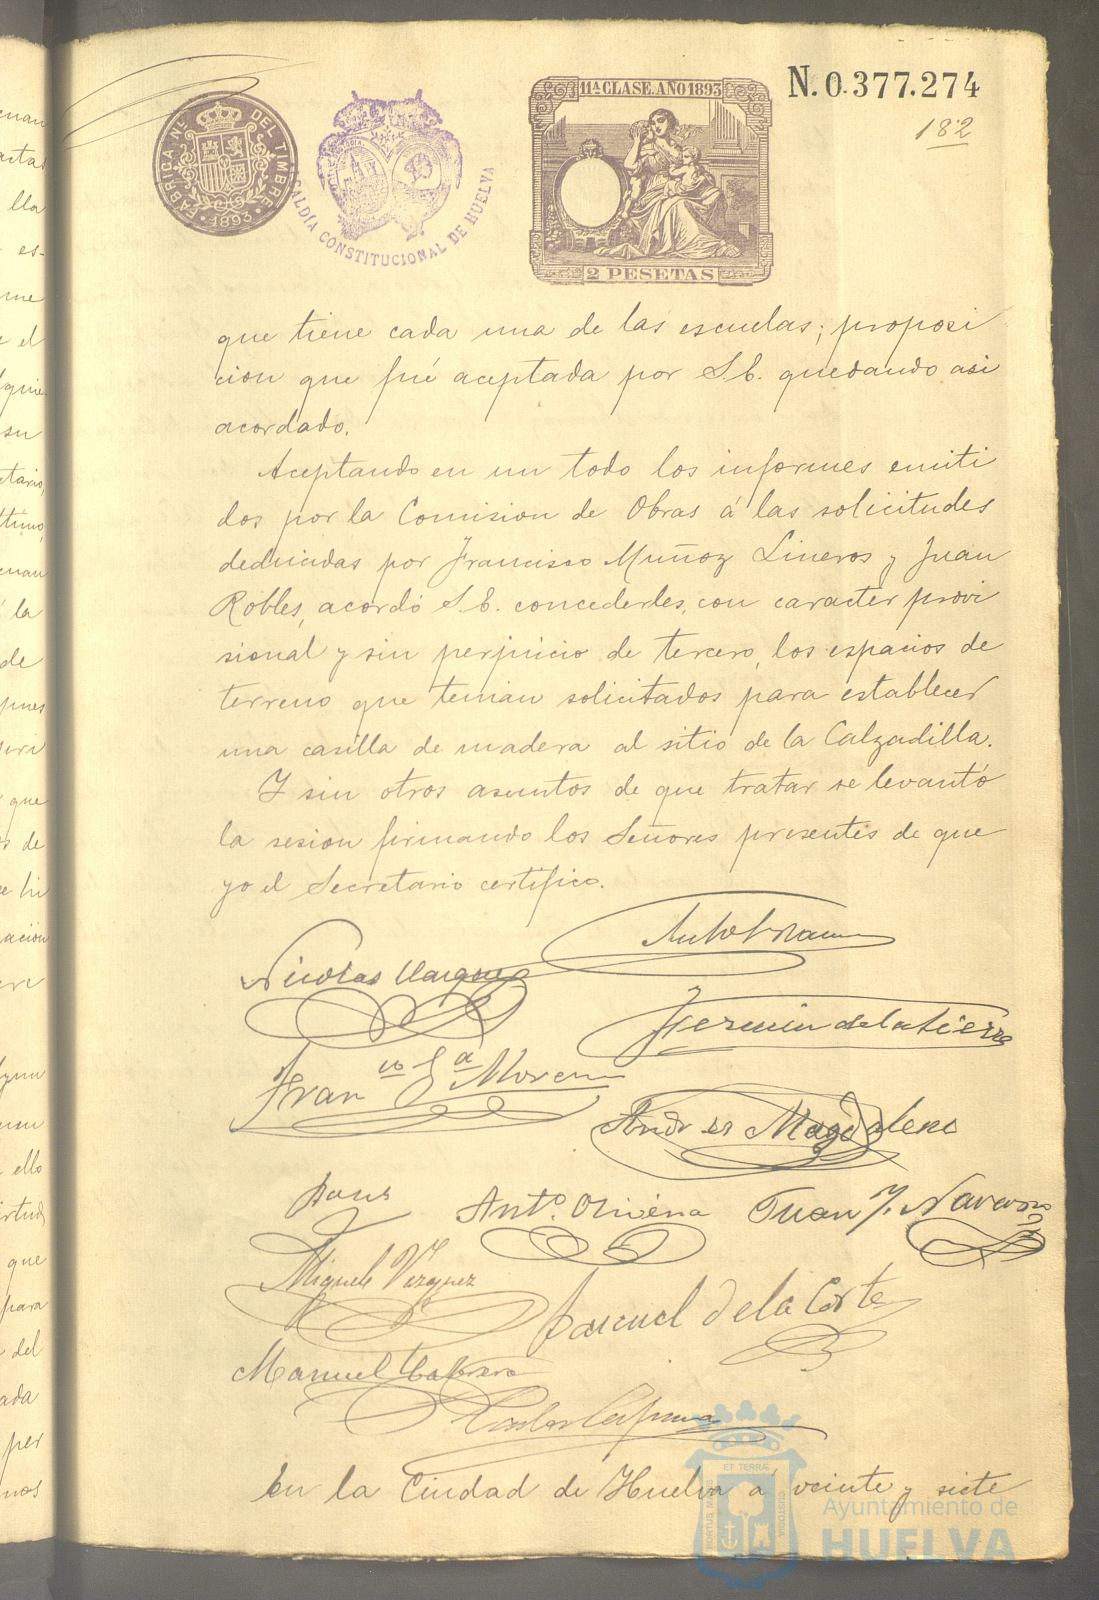 N. 0.377.274
182
11ª CLASE. AÑO 1893
2 PESETAS
FABRICA NL. DEL TIMBRE
1893
ALCALDÍA CONSTITUCIONAL DE HUELVA
que tiene cada una de las escuelas; proposi
cion que fué aceptada por S.E. quedando asi
acordado.
Aceptando en un todo los informes emiti
dos por la Comision de Obras á las solicitudes
deducidas por Francisco Muñoz Lineros y Juan
Robles, acordó S.E. concederles, con caracter provi
sional y sin perjuicio de tercero, los espacios de
terreno que tenian solicitados para establecer
una casilla de madera al sitio de la Calzadilla.
Y sin otros asuntos de que tratar se levantó
la sesion firmando los Señores presentes de que
yo el Secretario certifico.
Nicolas Vazquez
Fermin de la Sierra
Franco Ga Moreno
Andres Magdaleno
Anto. Oliveira Juan J. Navarro
Miguel Vazquez
Manuel de la Corte
Manuel Cabrera
En la Ciudad de Huelva á veinte y siete
ET TERRÆ
PORTUS MARIS
CUSTODIA
Ayuntamiento de
HUELVA